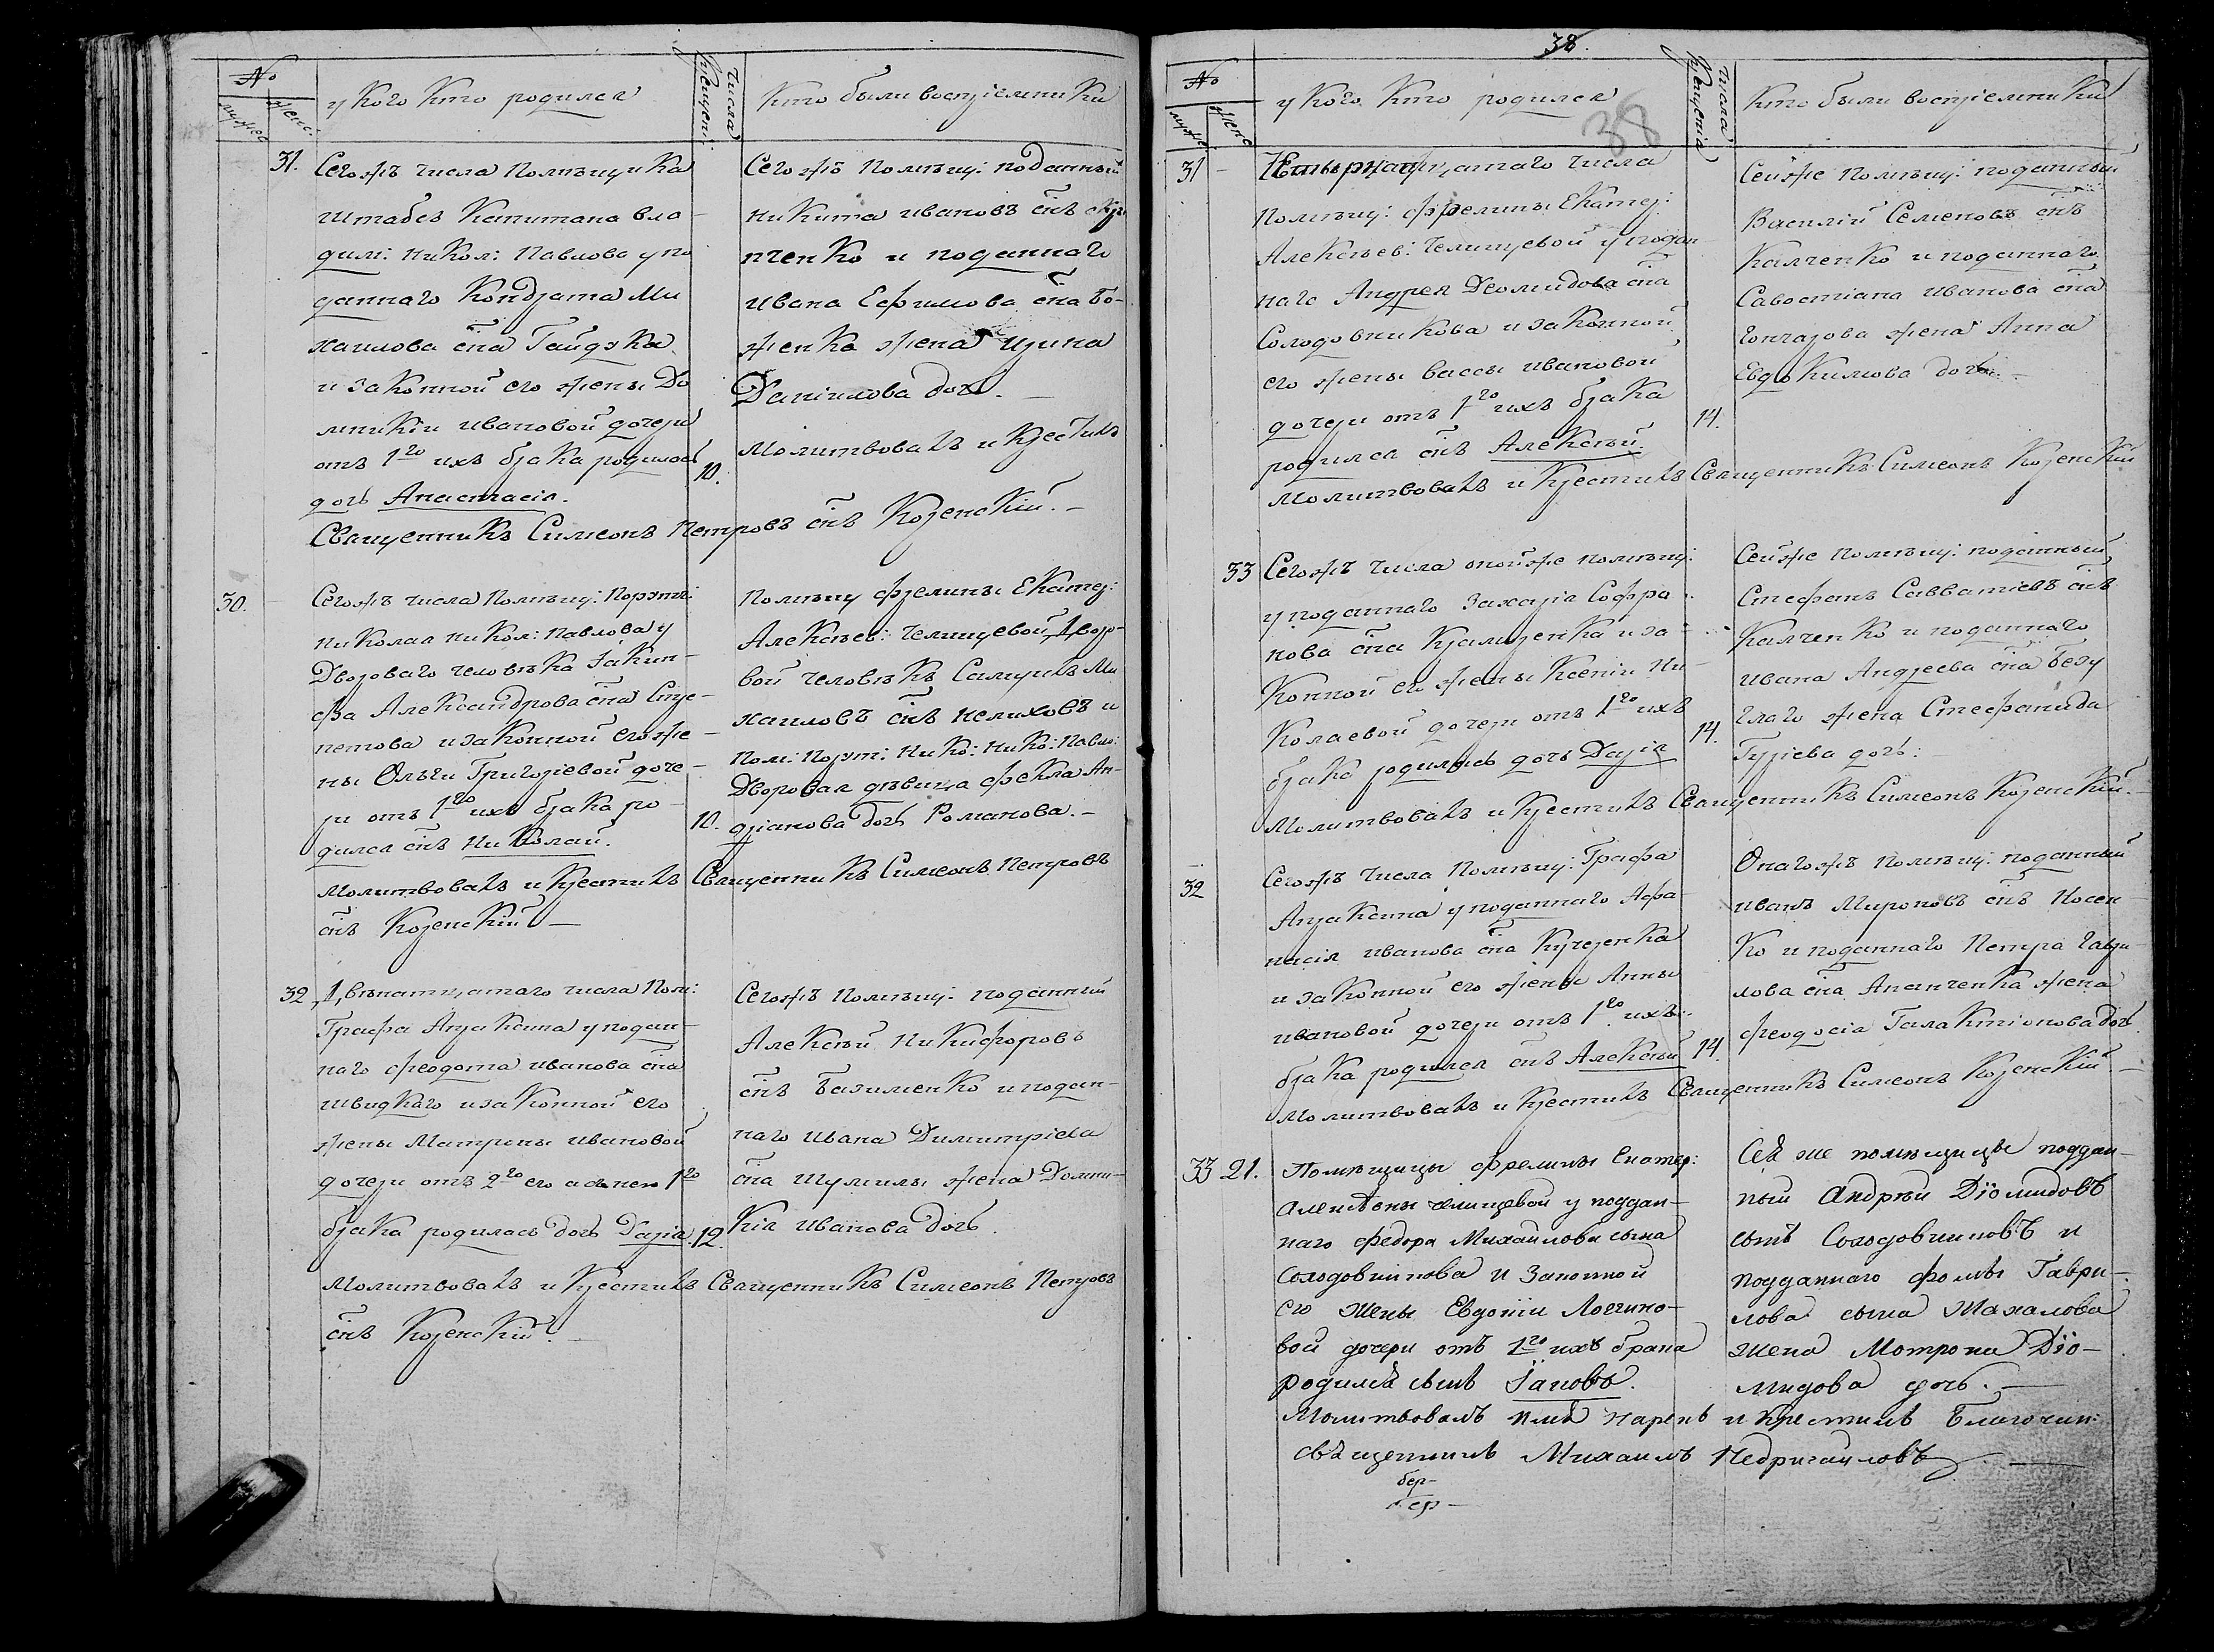 №
мужес
женс:
у кого кто родился
Числа Крещені:
кто были воспріемники
31.
Сегожъ числа Помѣщика
штабсъ Капитана вла-
дим: Никол: Павлова у по
даннаго Кондрата Ми
хаилова сна Гайдука
и законной его жены До
мникіи ивановой дочери
отъ 1го ихъ брака родилась
дочь Анастасія.
10.
Сегожъ помѣщи: поданный
никита ивановъ снъ
пченко и поданнаго
ивана Ефимова сна Бо-
женка жена ирина
Даніилова дочь. —
Молитвовалъ и Крестилъ
Священникъ Симеонъ Петровъ снъ Козенскій. —
30.
Сегожъ числа Помѣщи: Порутчи
николая никол: Павлова у
Двороваго человѣка Іакин-
фа Александрова сна Сту-
петова и законной его же-
ны Ольги Григоріевой доче-
ри отъ 1го ихъ брака ро-
дился снъ Николай.
10.
Помѣщи фрелины Екатер:
Алексѣев: Челищевой, Дворо-
вой человѣкъ Самуилъ Ми
хаиловъ снъ нелиховъ и
Пом: Порут: Нико: Нико: Павло:
Дворовая дѣвица фекла Ан-
дріанова дочь Романова. —
Молитвовалъ и Крестилъ Священникъ Симеонъ Петровъ
снъ Козенскій —
32
Двѣнатцатаго числа Пом:
Графа Апраксина у подан-
наго феодота иванова сна
швидкаго и законной его
жены Матроны ивановой
дочери отъ 2го его а съ нею 1го
брака родилась дочь Дарія.
12.
Сегожъ Помѣщи: поданний
Алексѣй Никифоровъ
снъ Базименко и подан-
наго ивана Димитріева
сна Шумилы жена Домни-
кія иванова дочь.
Молитвовалъ и Крестилъ Священникъ Симеонъ Петровъ
снъ Козенскій. —
38.
38
№
мужес
женс
у кого кто родился
Числа Крещенія
кто были воспріемники
31
Четырнатцатаго числа
Помѣщи: фрелины Екатер:
Алексѣев: Челищевой у подан-
наго Андрея Деомидова сна
Солодовникова и законной
его жены вассы ивановой
дочери отъ 1го ихъ брака
родился снъ Алексѣй.
14.
Сейже помѣщи: поданный
Василій Семеновъ снъ
Калченко и поданнаго
Савостіана иванова сна
гончарова жена Анна
Евдокимова дочь. —
Молитвовалъ и Крестилъ Священникъ Симеонъ Козенскій
33
Сегожъ числа онойже помѣщи:
у поданнаго Захарія Софро
нова сна Крамаренка и за-
конной его жены Ксеніи Ни-
колаевой дочери отъ 1го ихъ
брака родилась дочь Дарія
14.
Сейже Помѣщи: поданный
Стефанъ Савватіевъ снъ
Калченко и поданнаго
ивана Андреева сна безу
глаго жена Стефанида
Гуріева дочь: —
Молитвовалъ и Крестилъ Священникъ Симеонъ Козенскій. —
32
Сегожъ Числа Помѣщи: Графа
Апраксина у поданнаго Афа-
насія иванова сна Кучеренка
и законной его жены Анны
ивановой дочери отъ 1го ихъ
брака родился снъ Алексѣй
14.
Онагожъ помѣщи: поданный
иванъ Мироновъ снъ Носен-
ко и поданнаго Петра гаври-
лова сна Апанченка жена
феодосія Галактіонова дочь.
Молитвовалъ и Крестилъ Священникъ Симеонъ Козенскій —
33 21.
Помѣщицы фрелины Екатер:
Алексѣвны челищевой у поддан-
наго федора Михаилова сына
Солодовникова и Законной
его Жены Евдокіи Логгино-
вой дочери отъ 1го ихъ брака
родился сынъ Іаковъ.
Сея же помѣщицы поддан-
ный Андрѣй Діомидовъ
сынъ Солодовниковъ и
подданнаго фомы Гаври-
лова сына Махалова
жена Мотрона Діо-
мидова дочь. —
Молитвовалъ имя нарекъ и крестилъ Благочин:
свѣщенникъ Михаилъ Недригайловъ. —
бер-
бер-